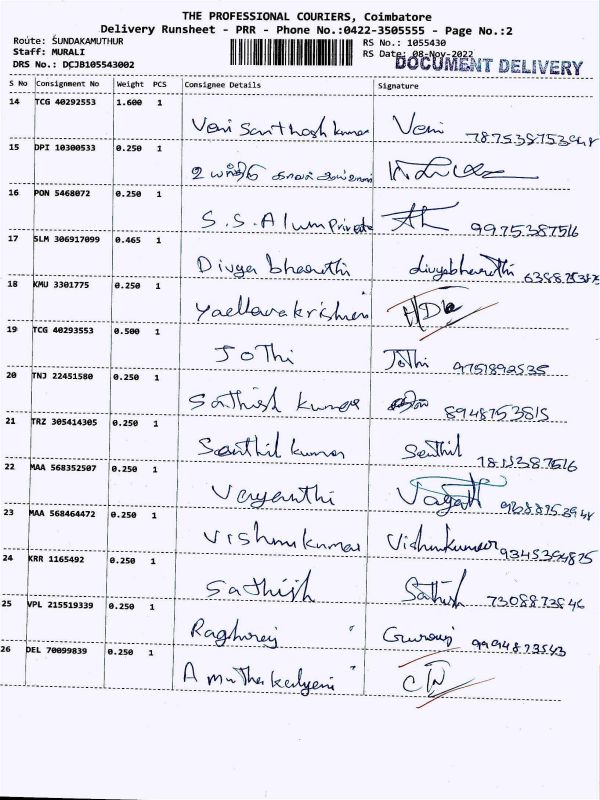 THE PROFESSIONAL COURIERS, Coimbatore
Delivery Runsheet - PRR - Phone No.:0422-3505555 - Page No.:2
Route: SUNDAKAMUTHUR
Staff: MURALI
DRS No.: DCJB105543002
RS No.: 1055430
RS Date: 08-Nov-2022
DOCUMENT DELIVERY
S No Consignment No Weight PCS Consignee Details Signature
14 TCG 40292553 1.600 1
Veni Santhosh kumar Veni
15 DPI 10300533 0.250 1
16 PON 5468072 0.250 1
S.S. Alum Private 9975387516
17 SLM 306917099 0.465 1
Divya bharathi divyabharathi
18 KMU 3301775 0.250 1
19 TCG 40293553 0.500 1
JoThi JoThi 9751892535
20 TNJ 22451580 0.250 1
Sathish kumar 8948753815
21 TRZ 305414305 0.250 1
Senthil kumar Senthil
22 MAA 568352507 0.250 1
23 MAA 568464472 0.250 1
Vishnukumar Vishnukumar
24 KRR 1165492 0.250 1
Sathish Sathish 7308873846
25 VPL 215519339 0.250 1
26 DEL 70099839 0.250 1